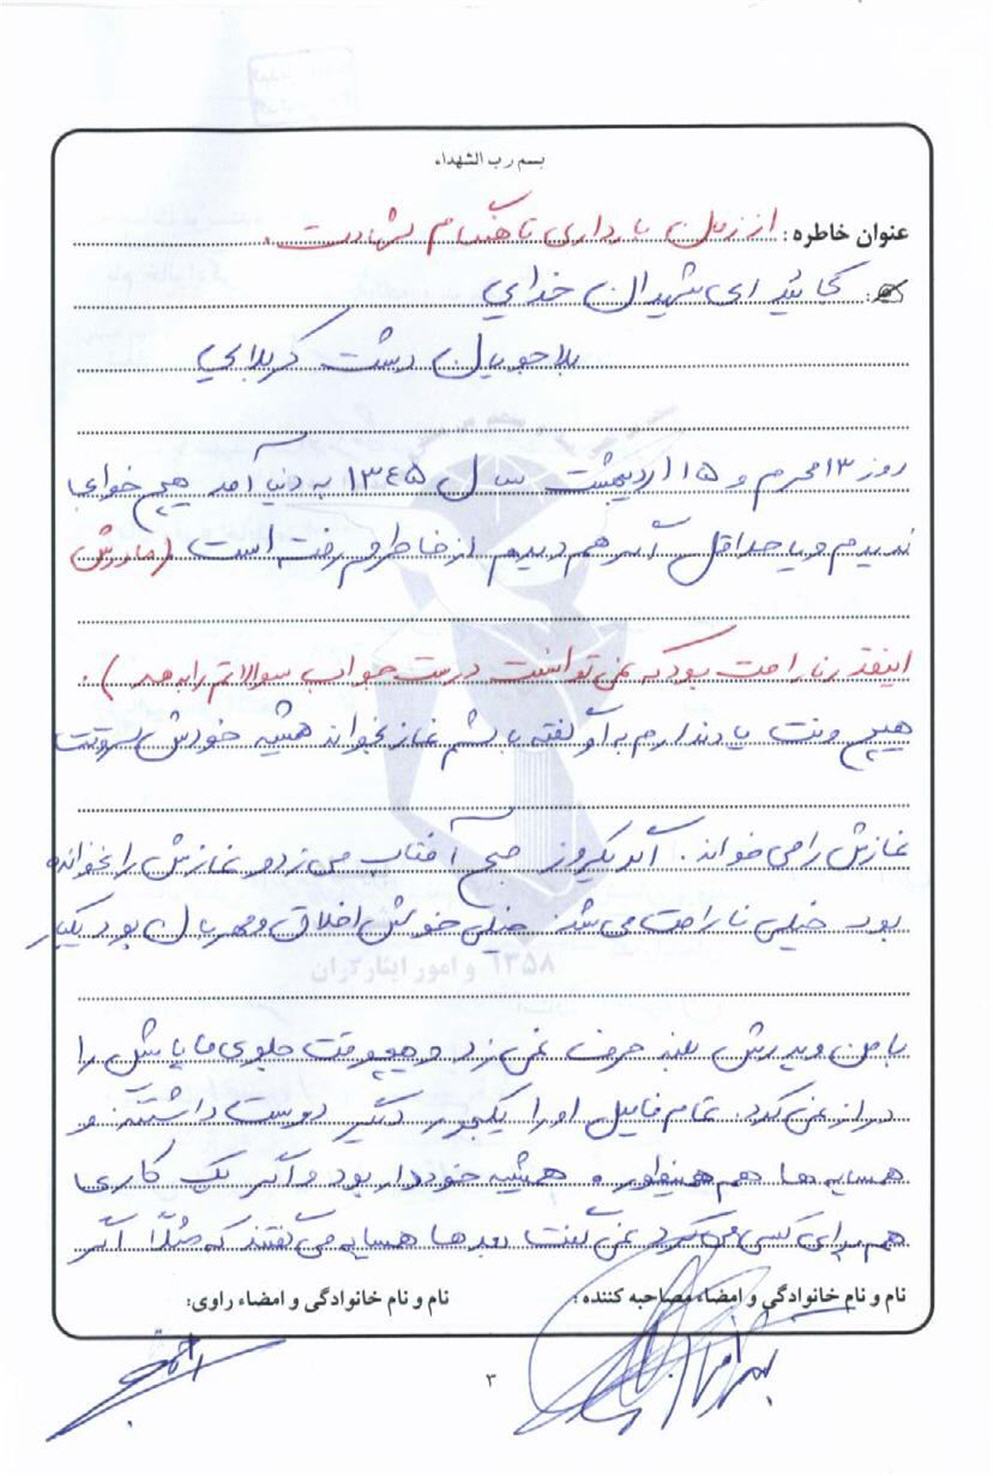 بسم رب الشهداء
عنوان خاطره: از زمان بارداری تا هنگام شهادت.
کجائید ای شهیدان خدایی
بلاجویان دشت کربلایی
روز ۱۳ محرم و ۱۵ اردیبهشت سال ۱۳۴۵ به دنیا آمد هیچ خوابی
ندیدم و یا حداقل اگر هم دیدم از خاطرم رفته است (مادرش
اینقدر ناراحت بود که نمی توانست درست جواب سوالاتم را بدهد).
هیچ وقت یاد ندارم به او گفته باشم نماز بخواند همیشه خودش سروقت
نمازش را می خواند. اگر یک روز صبح آفتاب می زد و نمازش را نخوانده
بود خیلی ناراحت می شد. خیلی خوش اخلاق و مهربان بود یکبار
با من و پدرش بلند حرف نمی زد و هیچوقت جلوی ما پایش را
دراز نمی کرد. تمام فامیل او را یکجور دیگر دوست داشتند و
همسایه ها هم همینطور و همیشه خوددار بود و اگر یک کاری
هم برای کسی می کرد نمی گفت بعدها همسایه می گفتند که مثلاً اگر
نام و نام خانوادگی و امضاء مصاحبه کننده: نام و نام خانوادگی و امضاء راوی:
۳
۱۳۵۸ و امور ایثارگران